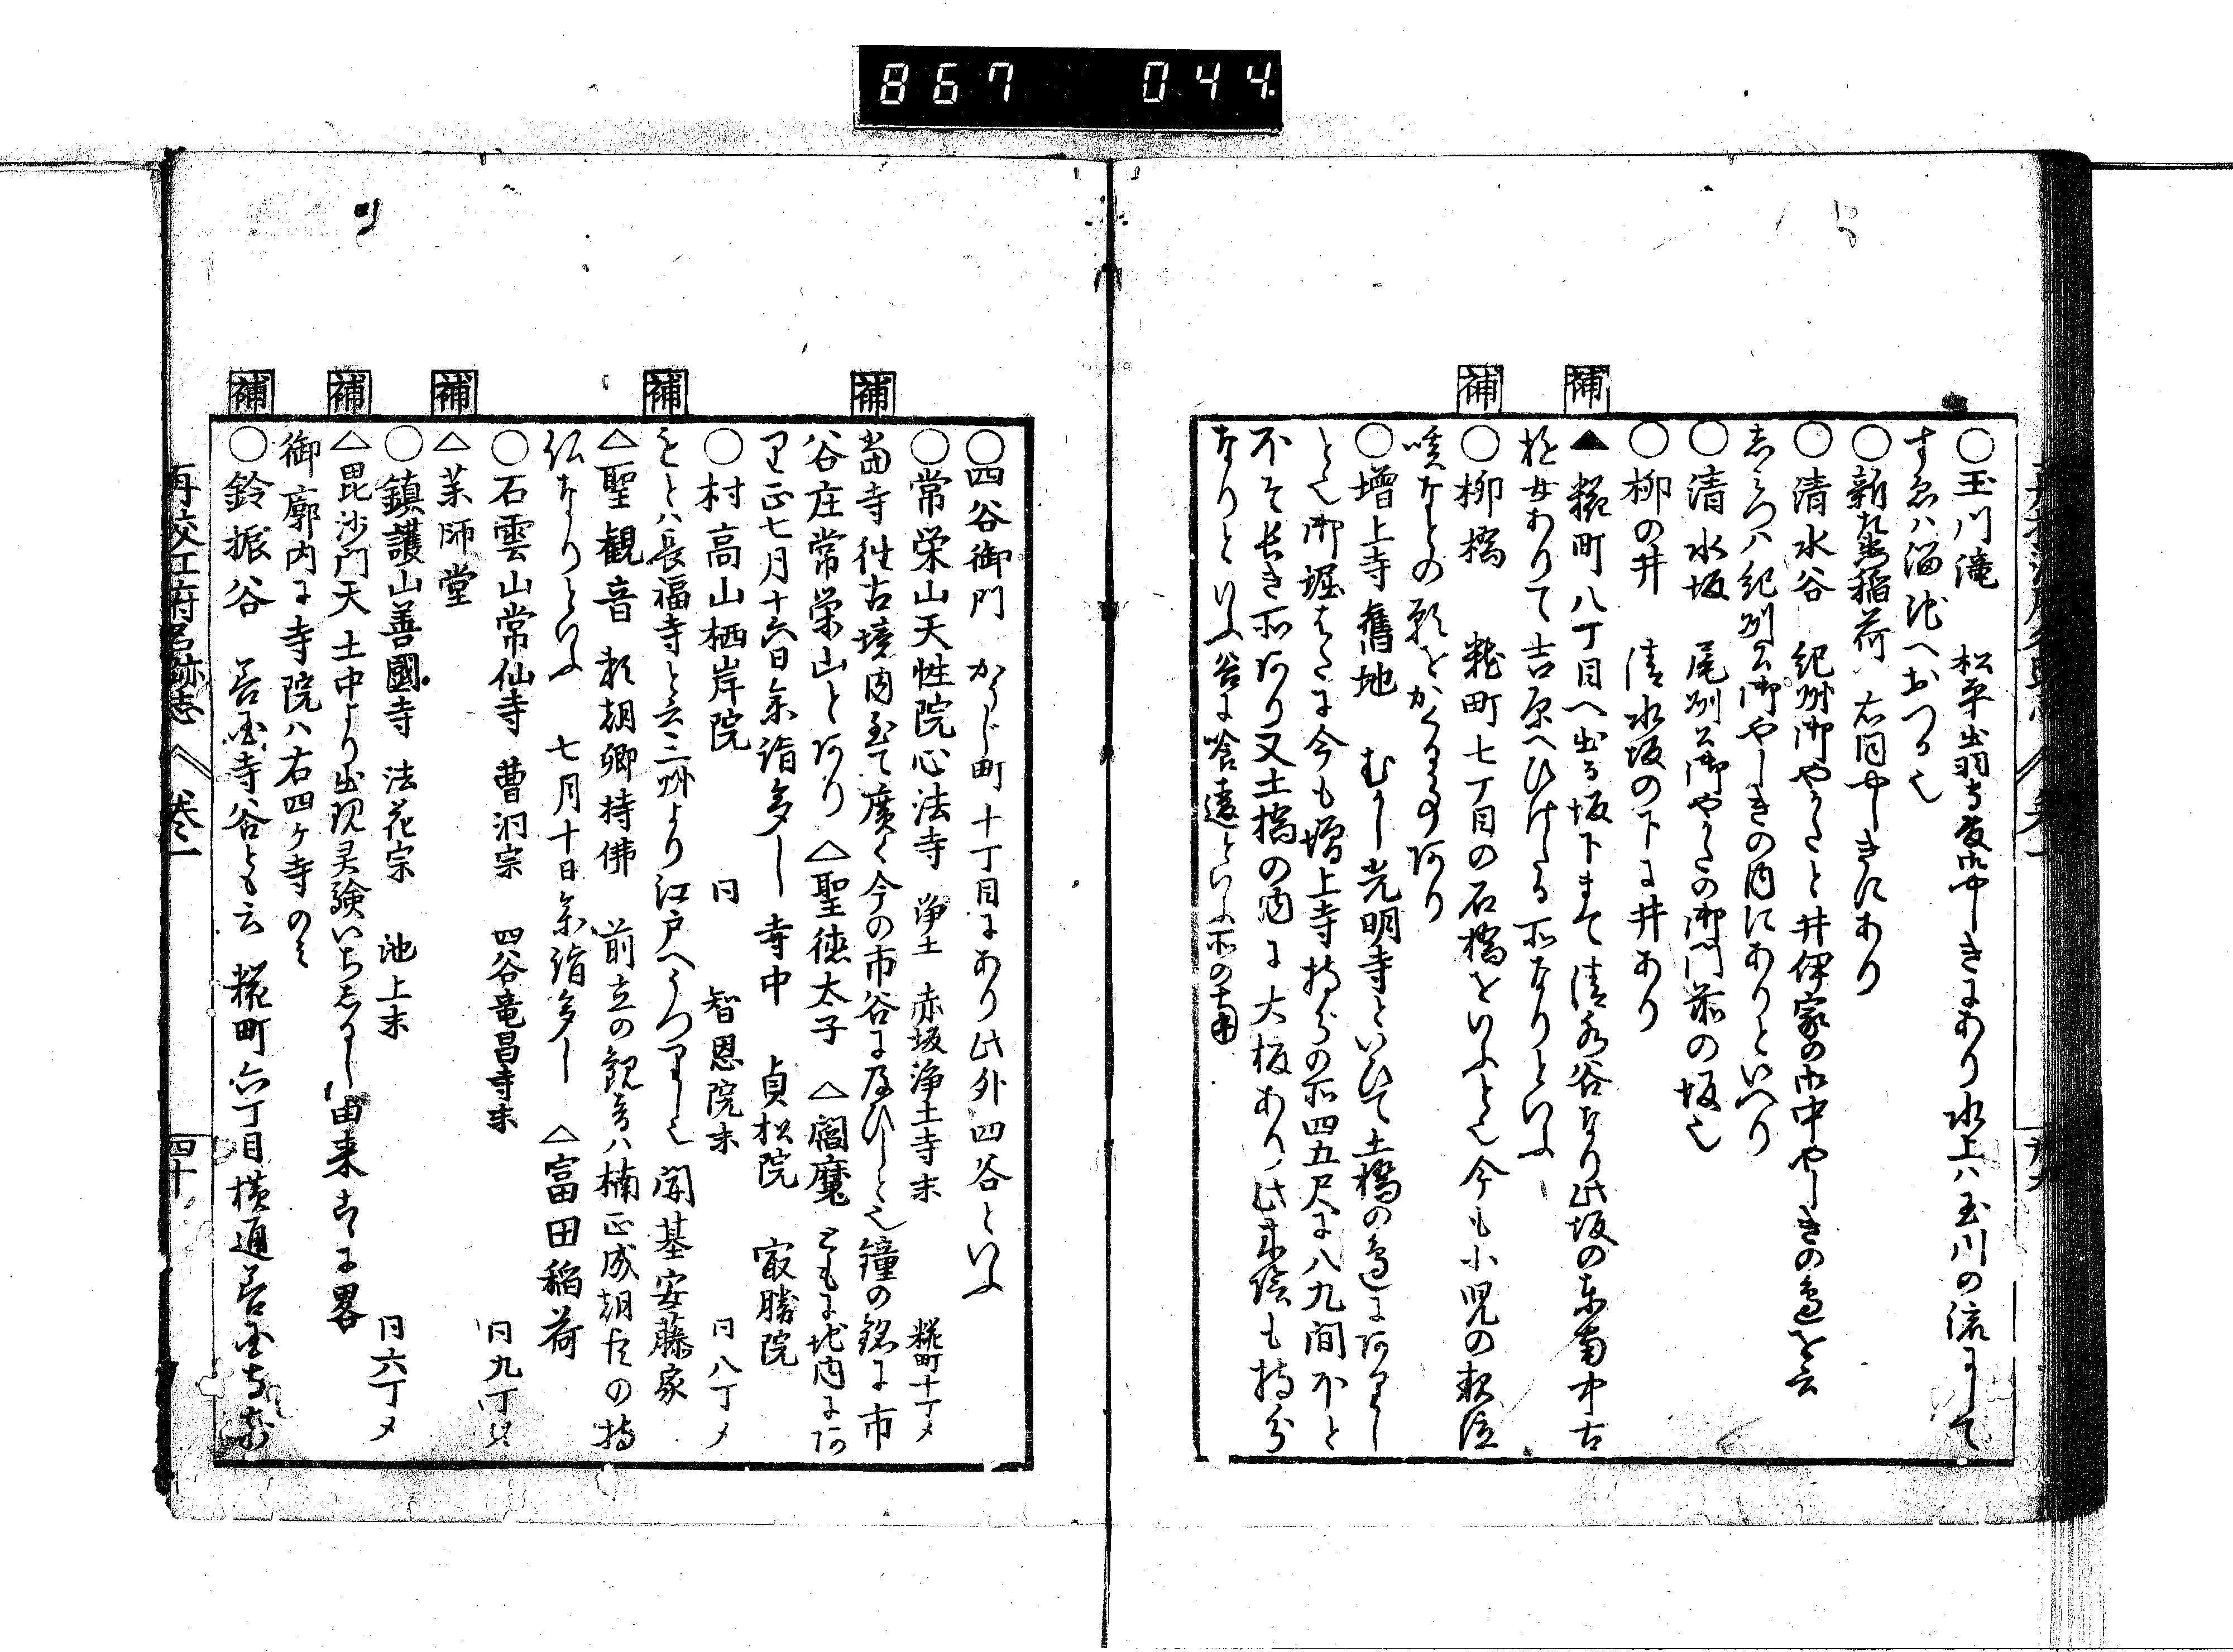 867 044
○玉川滝 松平出羽守殿御やしきにあり水上ハ玉川の流にして
すゑハ溜池へおつる也
○新左衛門稲荷 右同やしきにあり
○清水谷 紀州御やかたと井伊家の御中やしきの辺を云
しみつハ紀州公御やしきの内にありといへり
○清水坂 尾州公御やかたの御門前の坂也
○柳の井 清水坂の下に井あり
補
▲糀町八丁目へ出る坂下まて清水谷なり此坂の東南中古
遊女ありて吉原へひけたる所なりといふ
補
○柳橋 糀町七丁目の石橋をいふとそ今も小児の
咳なとの願をかくる事あり
○増上寺旧地 むかし光明寺といひて土橋の辺にありし
とそ御堀はたに今も増上寺持分の所四五尺に八九間ほと
不そ長き所あり又土橋の内に大板あり此
なりといふ谷は喰違といふ所の
○四谷御門 かうじ町十丁目にあり此外四谷といふ
○常栄山天性院心法寺 浄土 赤坂浄土寺末 糀町十丁メ
補
当寺往古境内至て広く今の市谷に及ひしと也鐘の銘に市
谷庄常栄山とあり △聖徳太子 △閻魔 ともに地内にあ
り正七月十六日参詣多し 寺中 貞松院 㝡勝院
○村高山栖岸院 同 智恩院末 同八丁メ
補
もとハ長福寺と云三州より江戸へうつりしと也 開基安藤家
△聖観音 頼朝卿持佛 前立の観音ハ楠正成朝臣の持
仏なりといふ 七月十日参詣多し △富田稲荷
○石雲山常仙寺 曹洞宗 四谷竜昌寺末 同九丁メ
補
△薬師堂
○鎮護山善國寺 法花宗 池上末 同六丁メ
補
△毘沙門天 土中より出現灵験いちしるし由来こゝに畧
御廓内に寺院ハ右四ヶ寺のみ
補
○鈴振谷 善国寺谷とも云 糀町六丁目横通善国寺前
再校江府名跡志 巻一 四十